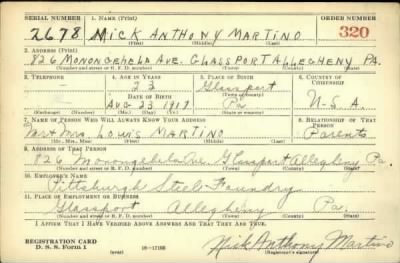 SERIAL NUMBER 1. NAME (Print) ORDER NUMBER
2678 NICK ANTHONY MARTINO 320
(First) (Middle) (Last)
2. ADDRESS (Print)
826 MONONGEHELA AVE. GLASSPORT ALLEGHENY PA.
(Number and street or R. F. D. number) (Town) (County) (State)
3. TELEPHONE 4. AGE IN YEARS 5. PLACE OF BIRTH 6. COUNTRY OF CITIZENSHIP
— 23 Glassport
DATE OF BIRTH
AUG 23 1917 Pa U.S.A.
(Exchange) (Number) (Mo.) (Day) (Yr.) (State or country)
7. NAME OF PERSON WHO WILL ALWAYS KNOW YOUR ADDRESS 8. RELATIONSHIP OF THAT PERSON
Mr & Mrs LOUIS MARTINO Parents
(Mr., Mrs., Miss) (First) (Middle) (Last)
9. ADDRESS OF THAT PERSON
826 Monongehela Ave. Glassport Allegheny Pa.
(Number and street or R. F. D. number) (Town) (County) (State)
10. EMPLOYER'S NAME
Pittsburgh Steel Foundry
11. PLACE OF EMPLOYMENT OR BUSINESS
Glassport Allegheny Pa.
(Number and street or R. F. D. number) (Town) (County) (State)
I AFFIRM THAT I HAVE VERIFIED ABOVE ANSWERS AND THAT THEY ARE TRUE.
REGISTRATION CARD
D. S. S. Form 1 (over) 16—17105 Nick Anthony Martino
(Registrant's signature)